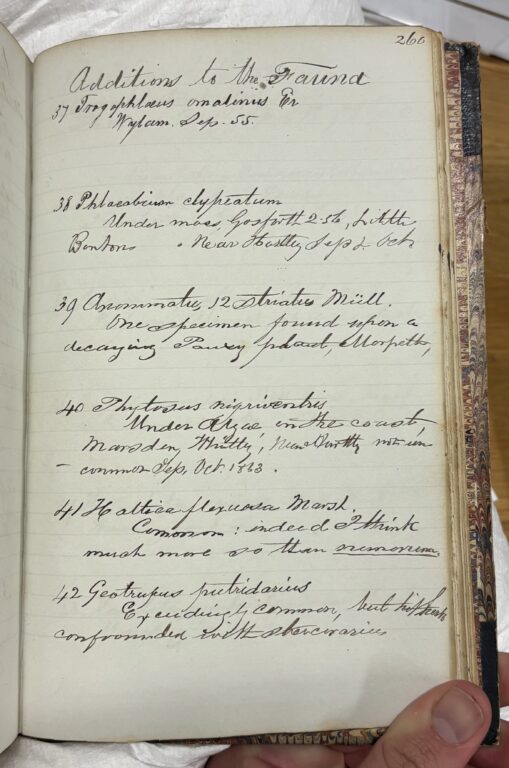 260
Additions to the Fauna
37 Trogophlaeus omalinus Er
Wylam. Sep. 55.
38 Phlaeobium clypeatum
Under moss, Gosforth 2-56, Little
Bentons . Near Hartley Sep & Oct
39 Anommatus 12 striatus Müll.
One specimen found upon a
decaying Pansy plant, Morpeth,
40 Phytosus nigriventris
Under Algae on the coast,
Marsden, Whitley, Near Hartley not un
- common Sep. Oct. 1863.
41 Haltica flexuosa Marsh.
Common: indeed I think
much more so than nemorum.
42 Geotrupes putridarius
Exceedingly common, but
confounded with stercorarius